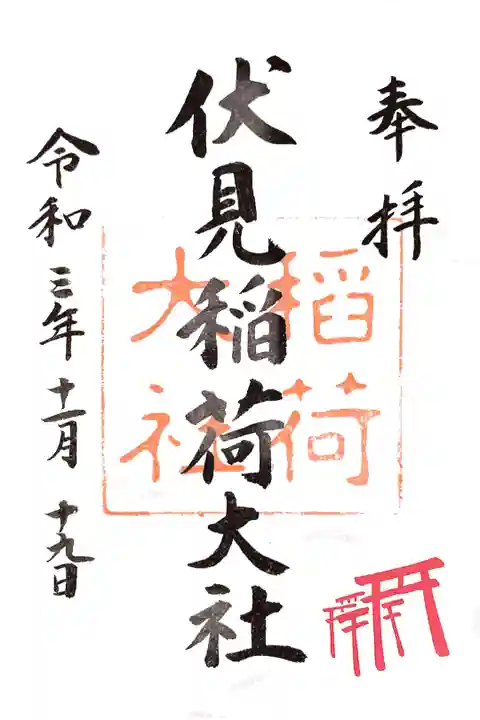 奉拝
伏見稲荷大社
稲荷
大社
令和三年十一月十九日